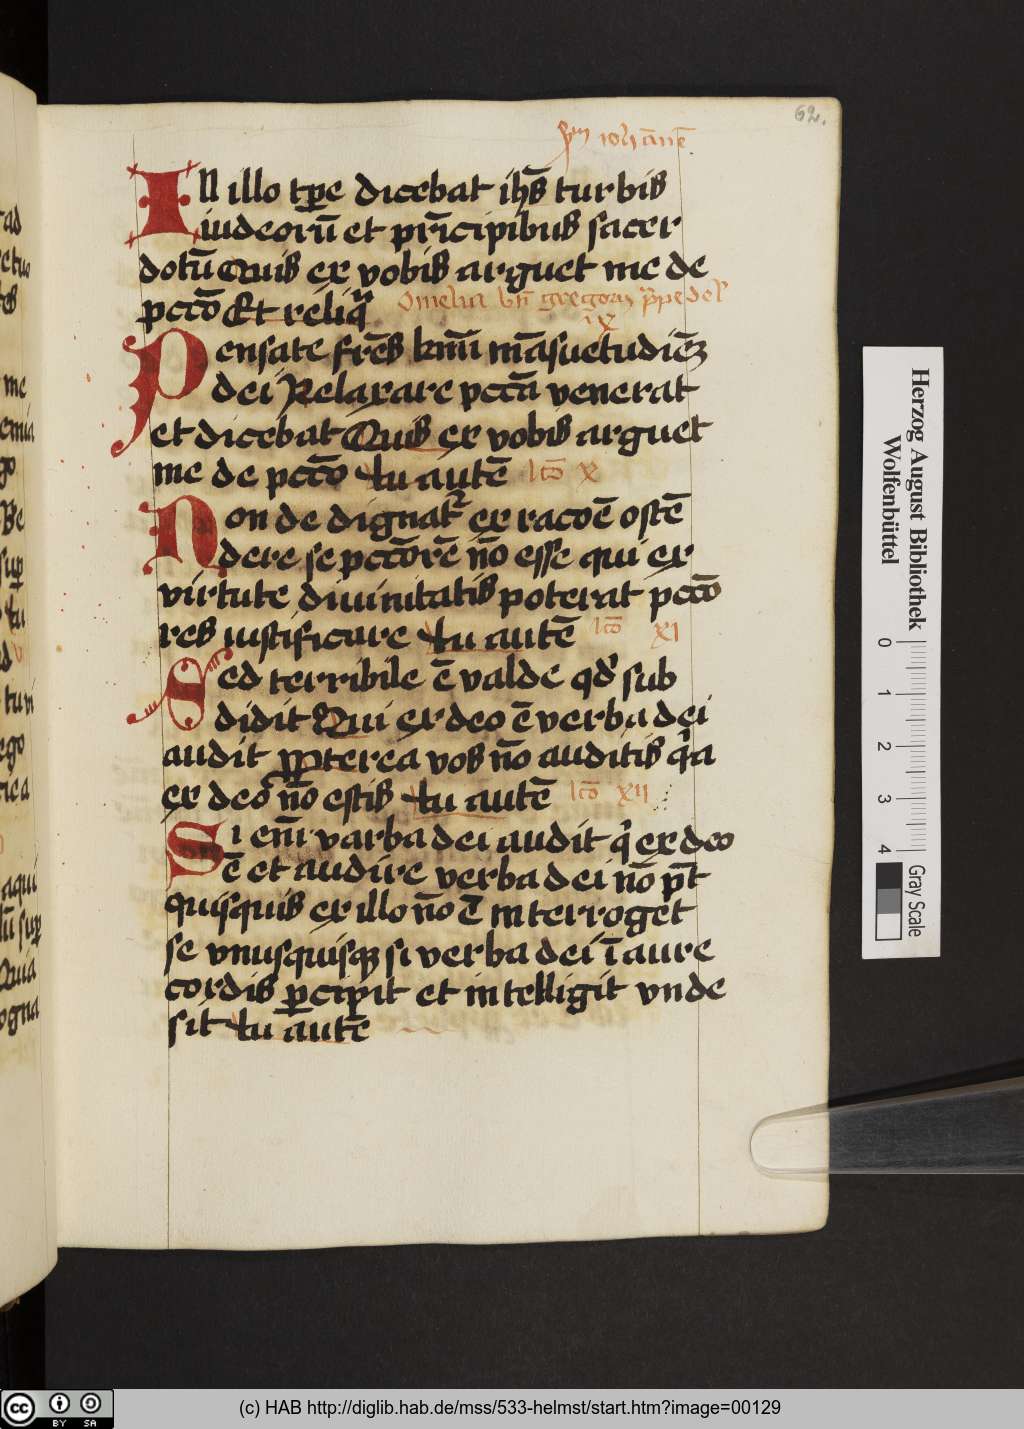 62.
s̄m ioh̄ānē
In illo tꝑe dicebat ih̄s turbis
iudeorū et pr̄icipibus sacer
dotū Quis ex vobis arguet me de
pccō Et reliq̄
Omelia bn̄ gregorii pape de
ix
Pensate fr̄es kmī māsuetudiēz
dei Relaxare pctā venerat
et dicebat Quis ex vobis arguet
me de pccō tu autē lcō x
Non de dignat᷑ ex racoē ostē
dere se pctōrē nō esse qui ex
virtute diuinitatis poterat pctō
res iustificare tu autē lcō xi
Sed terribile ē valde qd' sub
didit Qui ex deo ē verba dei
audit ꝓpterea vos nō auditis q̇a
ex deo nō estis tu autē lcō xii
Si em̄ varba dei audit q̇ ex deo
ē et audire verba dei nō pt̄
quisquis ex illo nō ē Interroget
se vnusquisqꝫ si verba dei ī aure
cordis ꝑcipit et intelligit vnde
sit tu autē
Herzog August Bibliothek
Wolfenbüttel
0 1 2 3 4
Gray Scale
cc BY SA
(c) HAB http://diglib.hab.de/mss/533-helmst/start.htm?image=00129